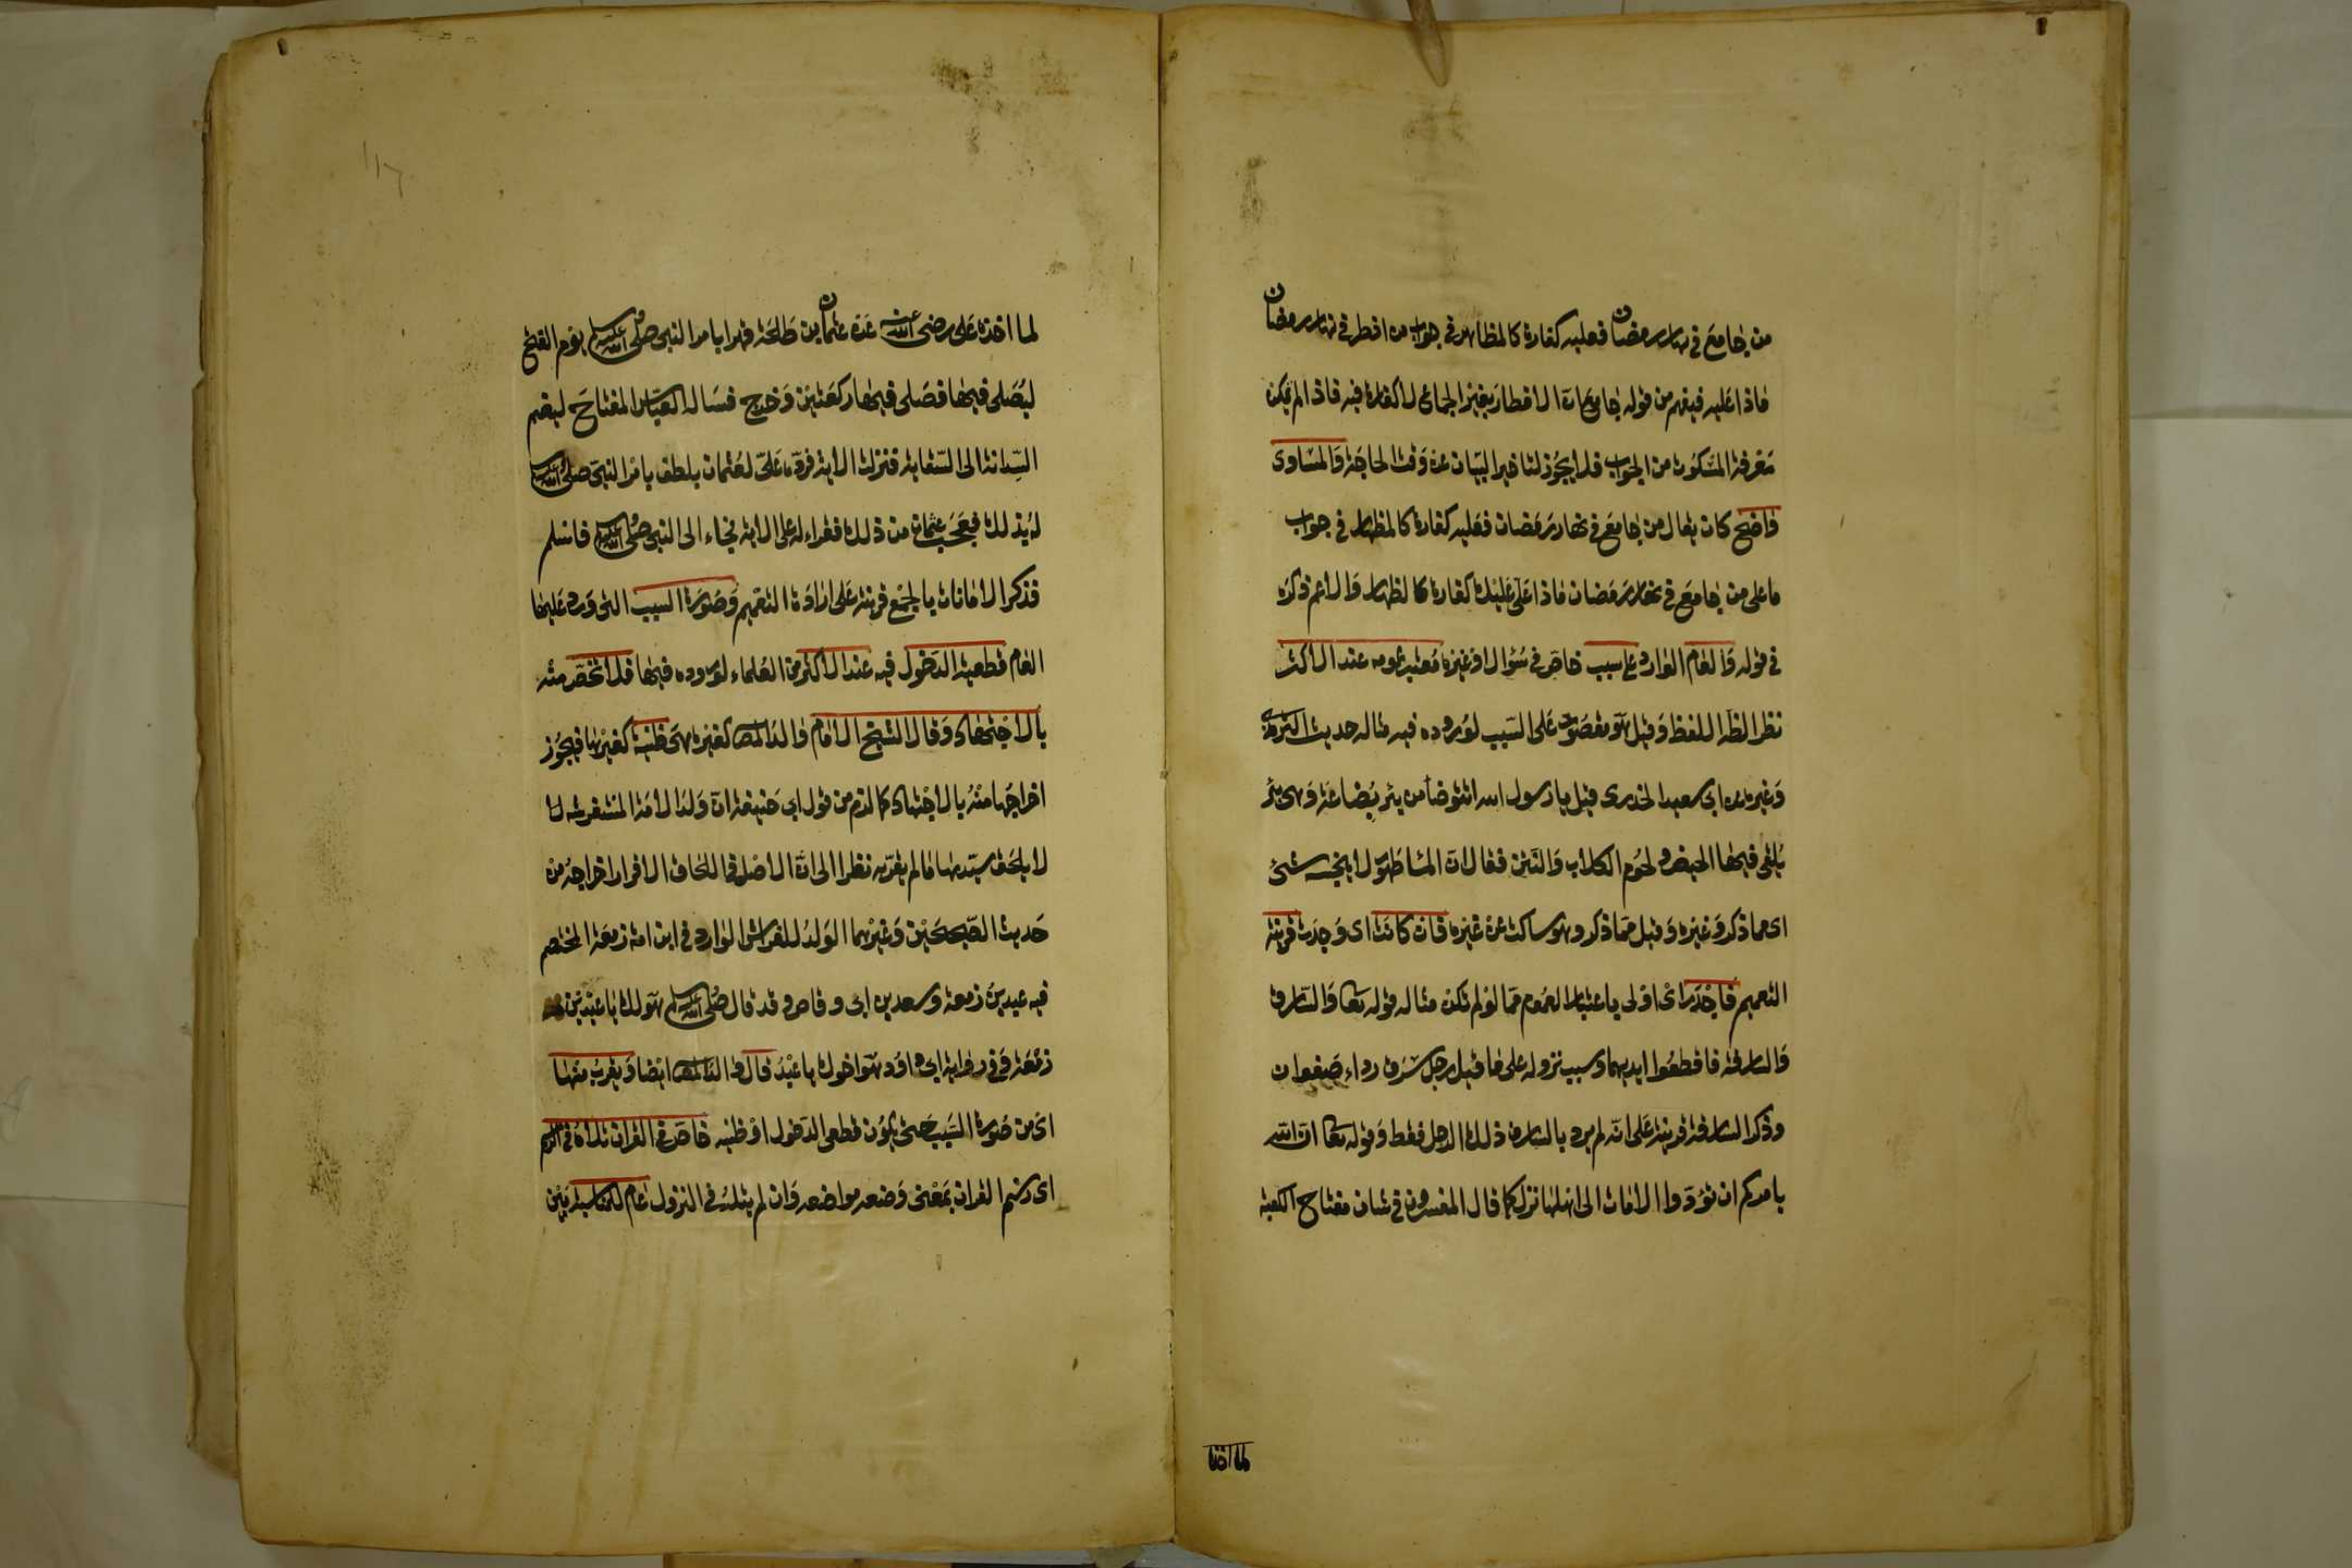 من جامع في نهار رمضان فعليه كفارة كالمظاهر في جواب من افطر في نهار رمضان
ماذا عليه فيفهم من قوله جامع ان الافطار بغير الجماع لا كفارة فيه فاذا لم يمكن
معرفة المسكوت من الجواب فلا يجوز لتاخير البيان عن وقت الحاجة والمساوى
واضح كان يقال من جامع في نهار رمضان فعليه كفارة كالمظهار في جواب
ما على من جامع في نهار رمضان ماذا على عليك كفارة كالظهار والاعم ذكره
في قوله والعام الوارد على سبب خاص في سؤال او غيره معتبر عمومه عند الاكثر
نظرا لظاهر اللفظ وقيل هو مقصور على السبب لوروده فيه مثاله حديث الترمذي
وغيره عن ابي سعيد الخدرى قيل يا رسول الله انتوضأ من بئر بضاعة وهى بئر
يلقى فيها الحيض ولحوم الكلاب والنتن فقال ان الماء طهور لا ينجسه شئ
اى مما ذكر وغيره وقيل مما ذكر وهو ساكت عن غيره فان كانت اى وجدت قرينة
التعميم فاجدر اى اولى باعتبار العموم مما لو لم تكن مثاله قوله تعا والسارق
والسارقة فاقطعوا ايديهما وسبب نزوله على ما قيل رجل سرق رداء صفوان
وذكر السارقة قرينة على انه لم يرد بالسارق ذلك الرجل فقط وقوله تعا ان الله
يامركم ان تؤدوا الامانات الى اهلها نزل كما قال المفسرون في شان مفتاح الكعبة
لما اخذه
لما اخذه على رضى الله عنه من عثمان بن طلحة قهرا بامر النبى صلى الله عليه وسلم يوم الفتح
ليصلى فيها فصلى فيها ركعتين وخرج فساله العباس المفتاح ليضم
السدانة الى السقاية فنزلت الاية فرده على لعثمان بلطف بامر النبى صلى الله
له بذلك فعجب عثمان من ذلك فقراء له على الاية فجاء الى النبى صلى الله عليه وسلم فاسلم
فذكر الامانات بالجمع قرينة على ارادة التعميم وصورة السبب التى ورد عليها
العام قطعية الدخول فيه عند الاكثر من العلماء لوروده فيها فلا تخص منه
بالاجتهاد وقال الشيخ الامام والد المص كغيره هى ظنية كغيرها فيجوز
اخراجها منه بالاجتهاد كما لزم من قول ابي حنيفة ان ولد الامة المستفرشة لا
لا يلحق سيدها ما لم يقر به نظرا الى ان الاصل في اللحاق الاقرار اخراجه من
حديث الصحيحين وغيرهما الولد للفراش الوارد في ابن امة زمعة المختصم
فيه عبد بن زمعة وسعد بن ابى وقاص وقد قال صلى الله عليه وسلم هو لك يا عبد بن
زمعة وفي رواية ابى داود هو اخوك يا عبد قال والد المص ايضا ويقرب منها
اى من صورة السبب حتى يكون قطعى الدخول او ظنيه خاص في القران تلاه في الرسم
اى رسم القران بمعنى وضعه مواضعه وان لم يتله في النزول عام للمناسبة بين